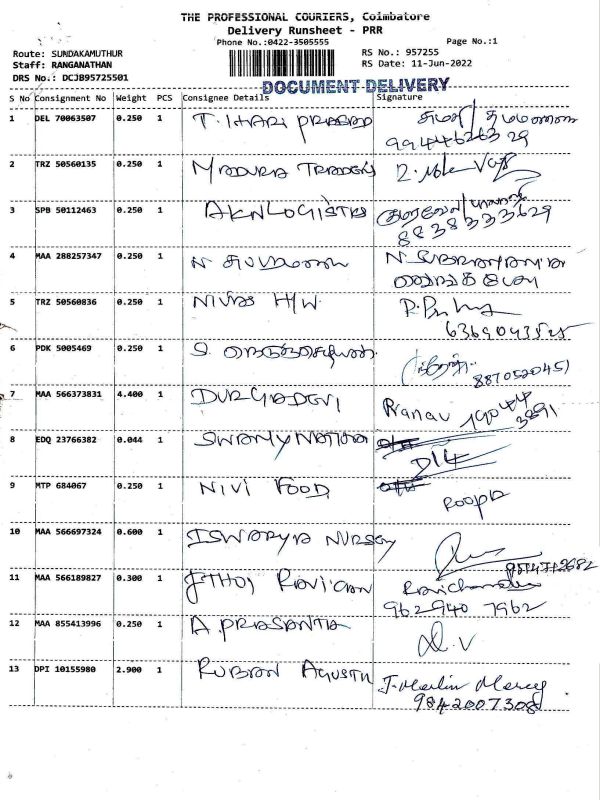 THE PROFESSIONAL COURIERS, Coimbatore
Delivery Runsheet - PRR
Phone No.:0422-3505555
Page No.:1
Route: SUNDAKAMUTHUR
RS No.: 957255
Staff: RANGANATHAN
RS Date: 11-Jun-2022
DRS No.: DCJB95725501
DOCUMENT DELIVERY
S No Consignment No Weight PCS Consignee Details Signature
1 DEL 70063507 0.250 1 T. HARI PRASAD
2 TRZ 50560135 0.250 1 MADURA TRADERS
3 SPB 50112463 0.250 1 AKNLOGISTICS
8838333629
4 MAA 288257347 0.250 1 N
5 TRZ 50560836 0.250 1 NIVAS H/W
6 PDK 5005469 0.250 1
8870520451
7 MAA 566373831 4.400 1 DURGADEVI Pranav
8 EDQ 23766382 0.044 1 SWAMYNATHAN
9 MTP 684067 0.250 1 NIVI FOOD ROOPA
10 MAA 566697324 0.600 1 ISWARYA NURSERY
11 MAA 566189827 0.300 1 Ravichandran
962940 7962
12 MAA 855413996 0.250 1 A. PRASANTH
13 DPI 10155980 2.900 1 RUBAN AGUSTIN J. Merlin Mercy
9842007308